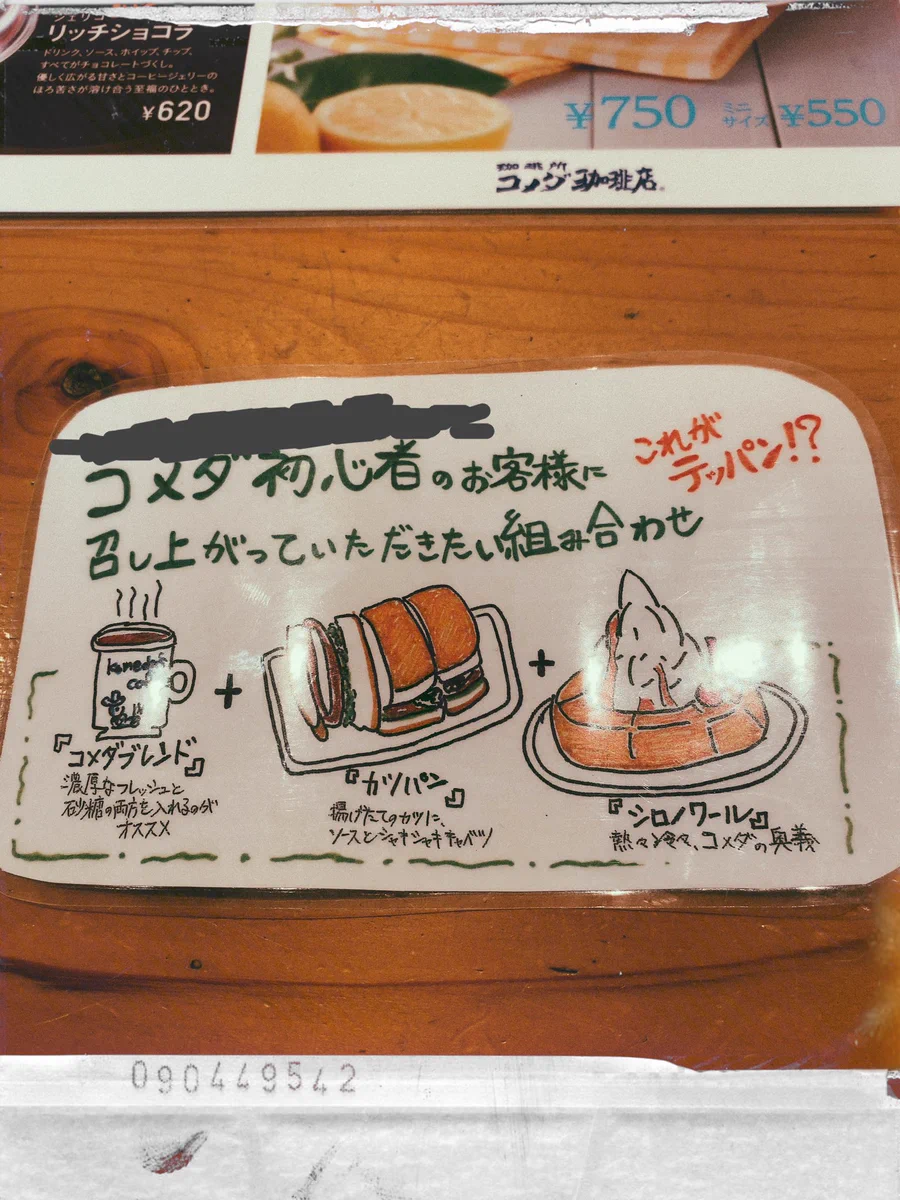 ジェリコ
リッチショコラ
ドリンク、ソース、ホイップ、チップ、
すべてがチョコレートづくし。
優しく広がる甘さとコーヒージェリーの
ほろ苦さが溶け合う至福のひととき。
¥620
¥750 ミニサイズ ¥550
珈琲所
コメダ珈琲店
コメダ初心者のお客様に
これが
テッパン!?
召し上がっていただきたい組み合わせ
Komeda's
+
+
『コメダブレンド』
濃厚なフレッシュと
砂糖の両方を入れるのが
オススメ
『カツパン』
揚げたてのカツに、
ソースとシャキシャキキャベツ
『シロノワール』
熱々冷々、コメダの奥義
090449542